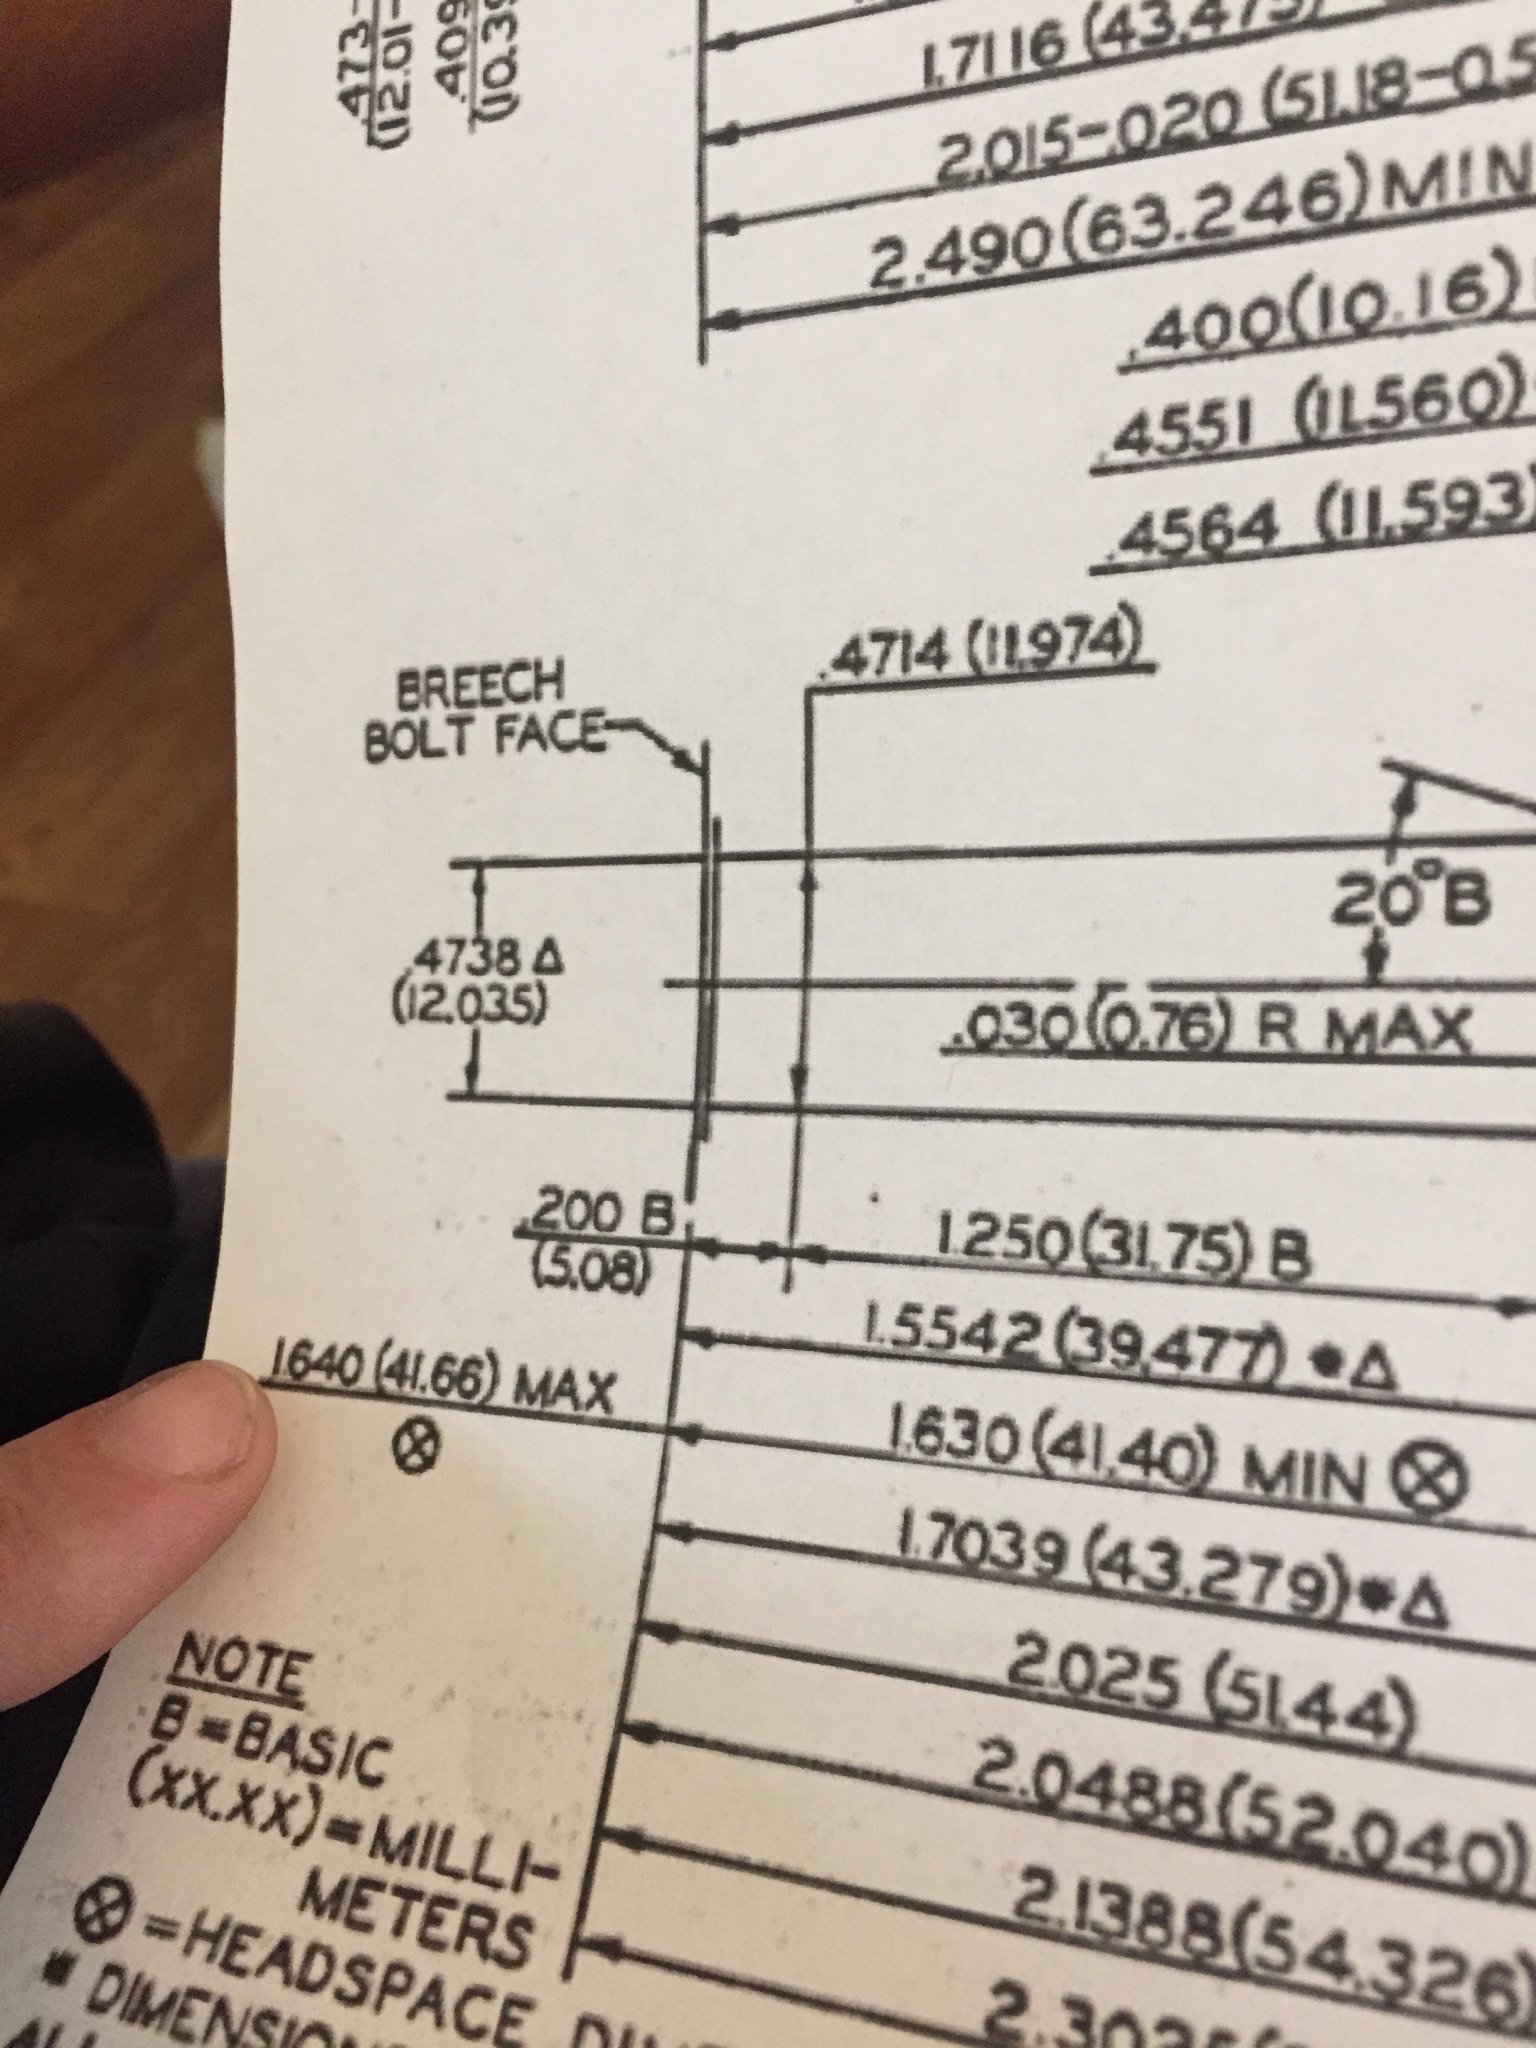 .473-
(12.01-
.409
(10.39
1.7116 (43.475)
2.015-.020 (51.18-0.5
2.490 (63.246) MIN
.400 (10.16)
.4551 (11.560)
.4564 (11.593)
.4714 (11.974)
BREECH
BOLT FACE
20°B
.4738 Δ
(12.035)
.030 (0.76) R MAX
.200 B
(5.08)
1.250 (31.75) B
1.5542 (39.477) *Δ
1.640 (41.66) MAX
⊗
1.630 (41.40) MIN ⊗
1.7039 (43.279) *Δ
2.025 (51.44)
2.0488 (52.040)
2.1388 (54.326)
NOTE
B = BASIC
(XX.XX) = MILLI-
METERS
⊗ = HEADSPACE
* DIMENSIONS
ALL